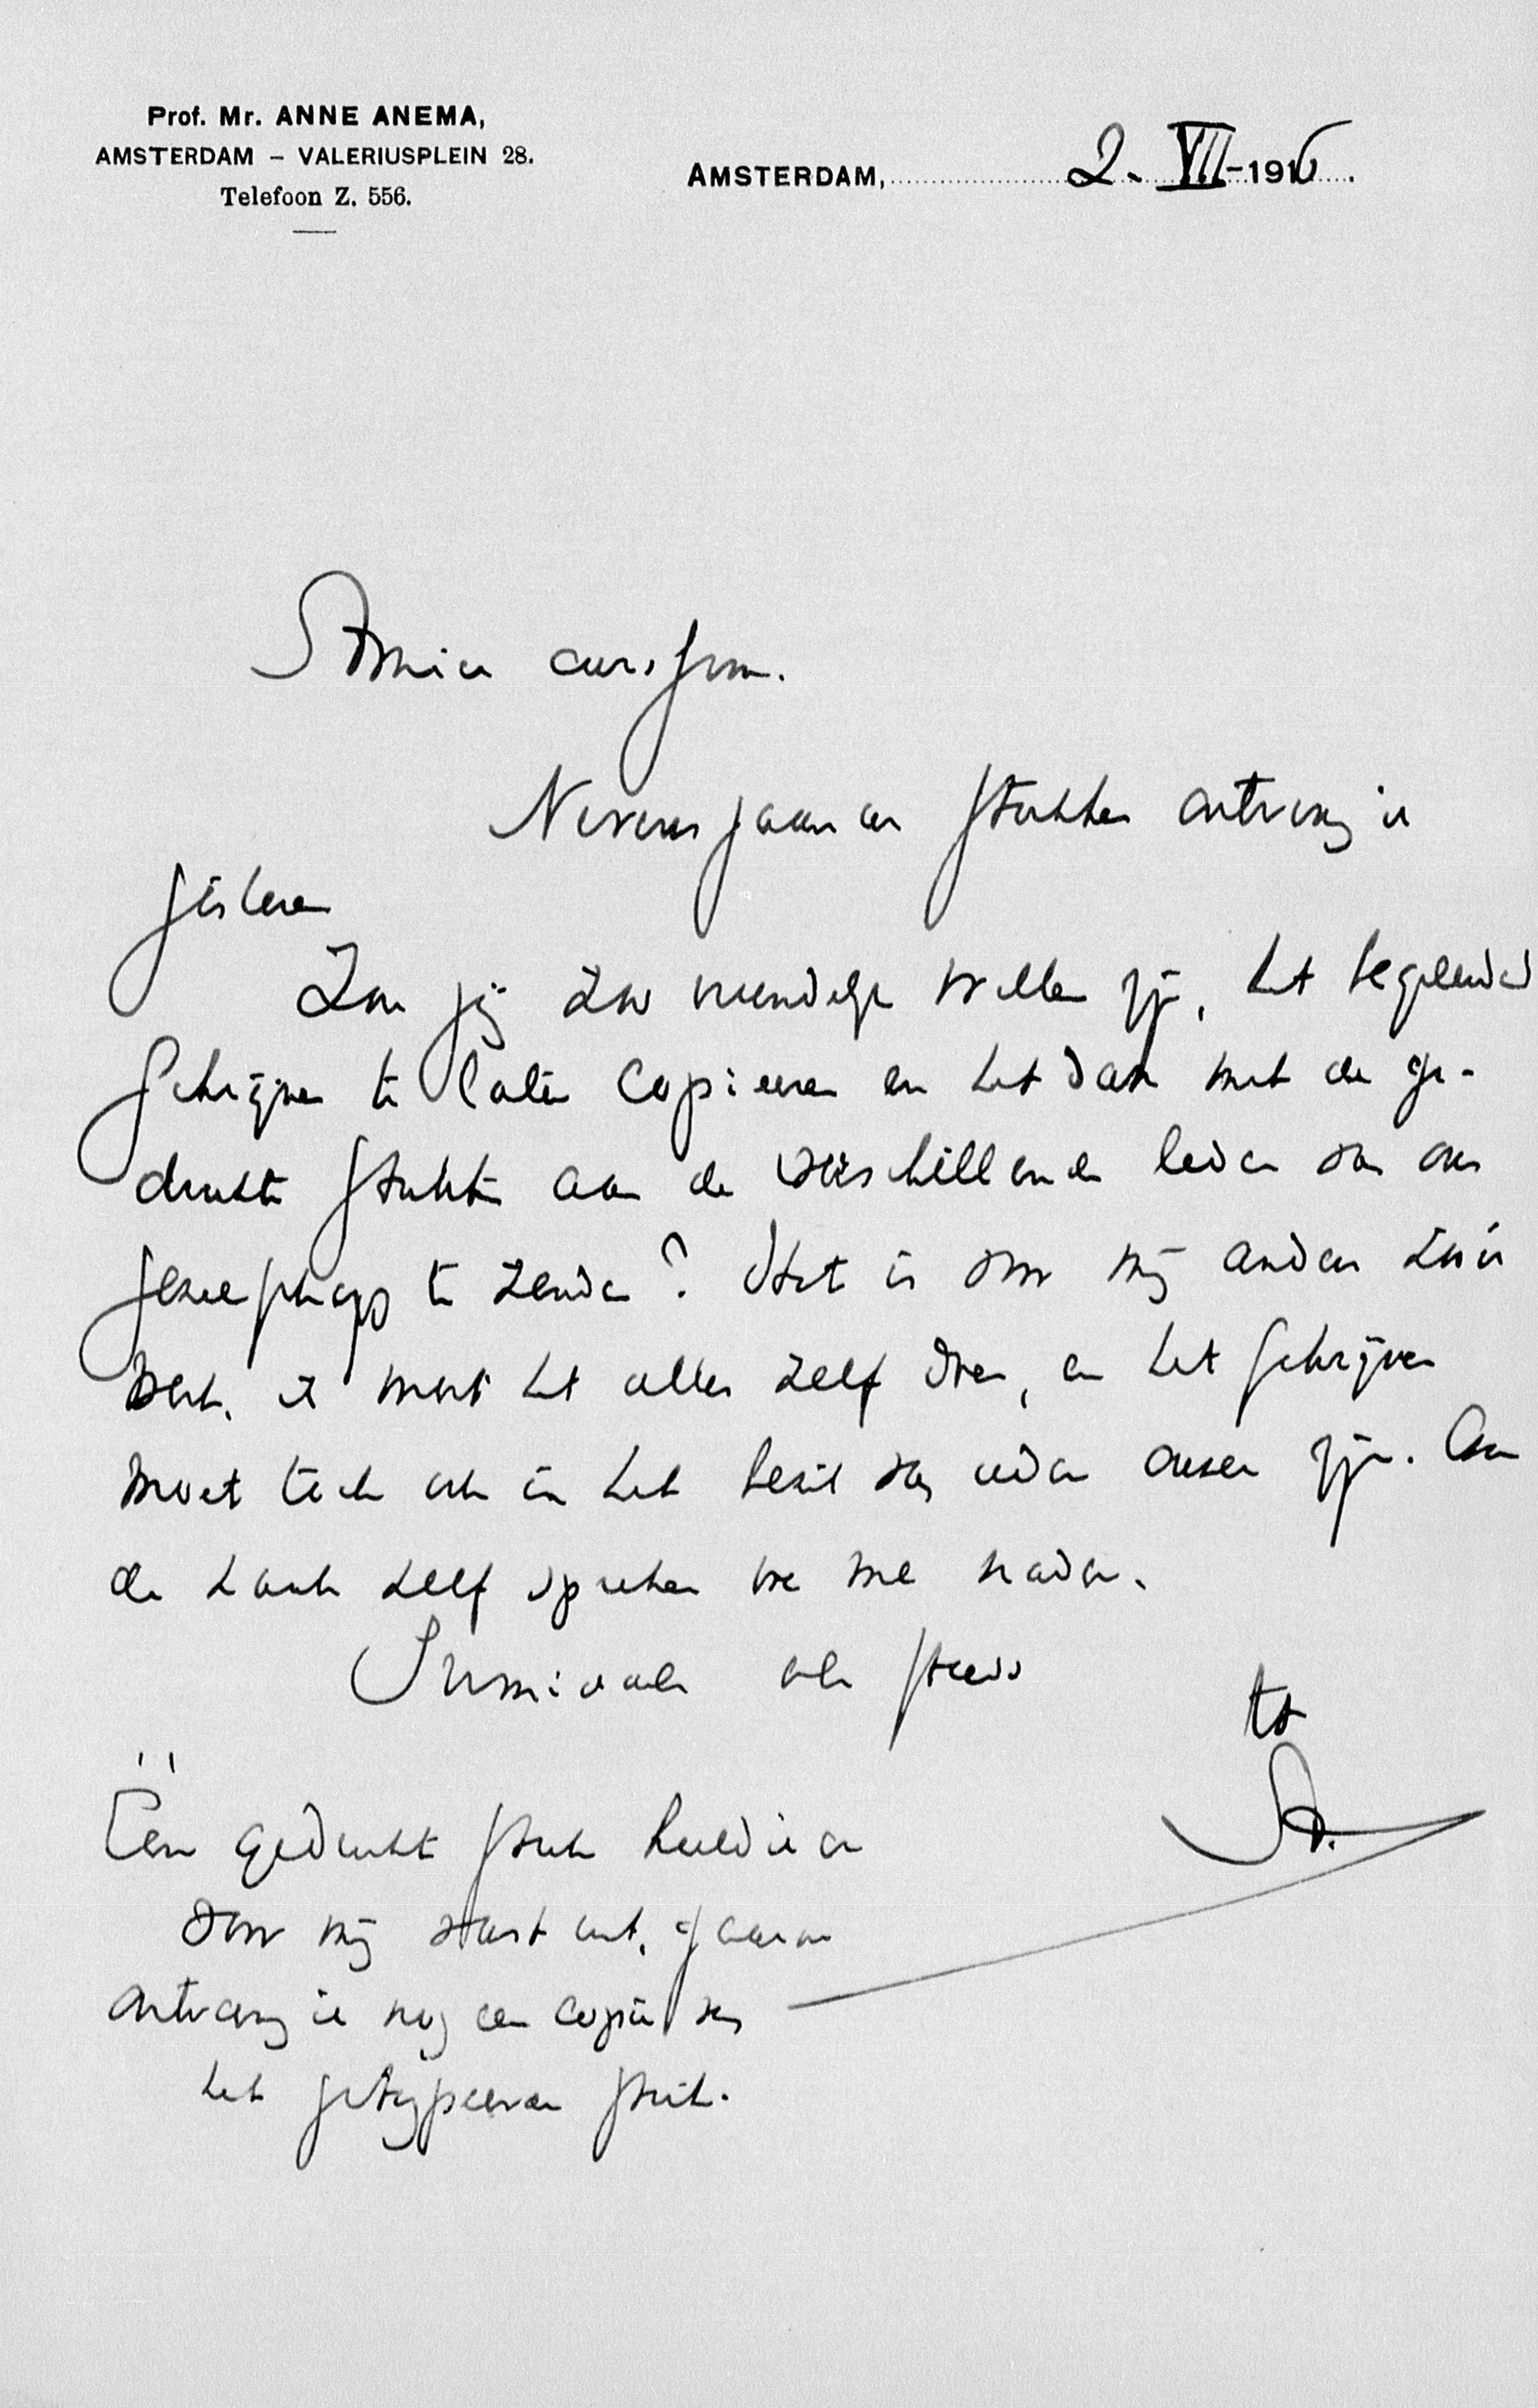 Prof. Mr. ANNE ANEMA,
AMSTERDAM – VALERIUSPLEIN 28.
Telefoon Z. 556.
AMSTERDAM, 2. VII-1916.
Amice carissime.
Nevensgaande stukken ontving ik
gisteren
Zou jij zoo vriendelijk willen zijn, het begeleidend
schrijven te laten copieeren en het dan met de ge-
drukte stukken aan de verschillende leden van ons
gezelschap te zenden? Het is voor mij anders zoo'n
werk, ik moet het alles zelf doen, en het schrijven
moet toch ook in het bezit van ieder onzer zijn. Over
de zaak zelf spreken we nader.
als steeds
tt
A.
Één gedrukt stuk hield ik er
voor mij vast uit, gaarne
ontvang ik nog een copie van
het getypeerde stuk.